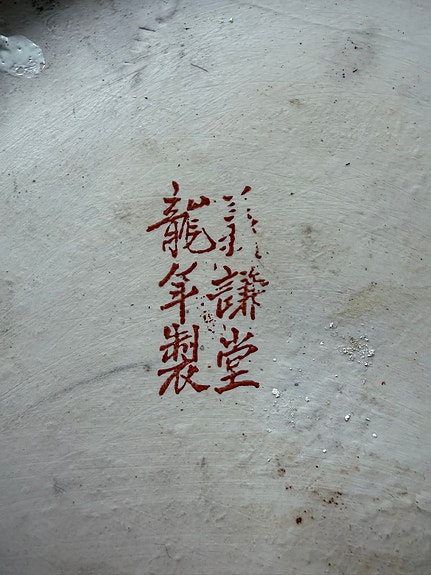 謙堂
龍年製